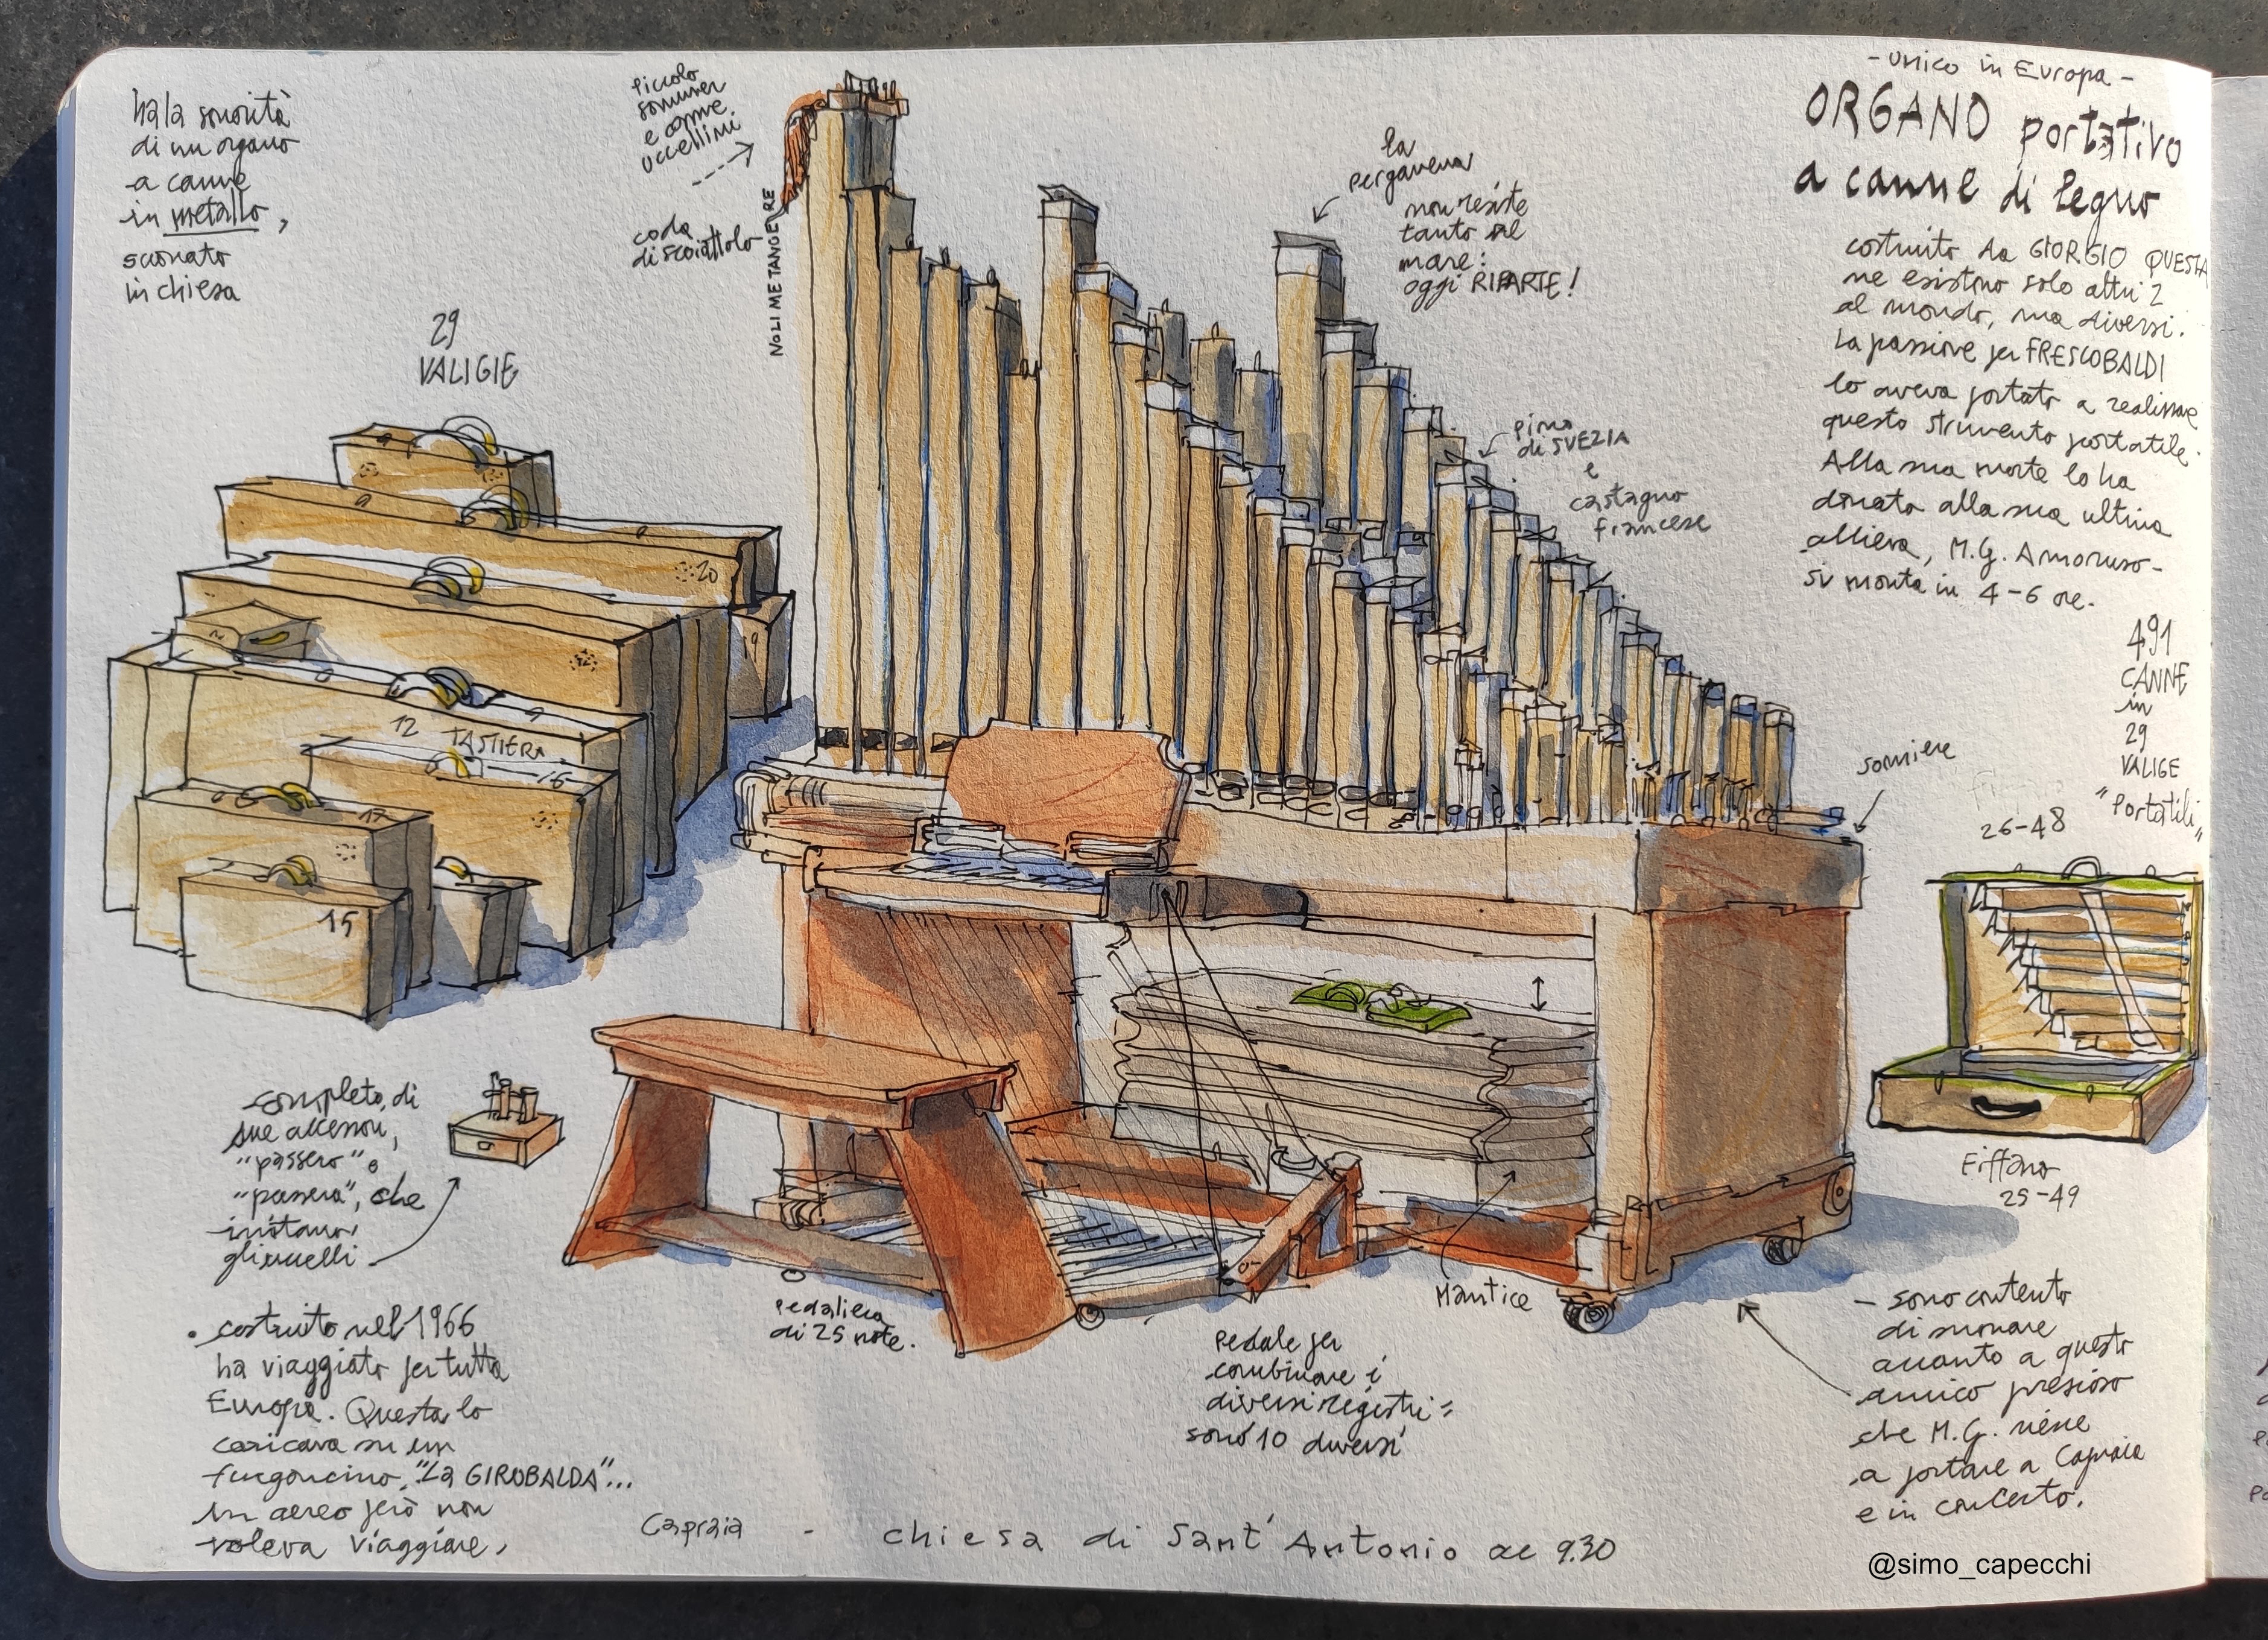 ha la sonorità
di un organo
a canne
in metallo,
suonato
in chiesa
29
VALIGIE
20
9
12
TASTIERA
16
17
15
piccolo
sommier
e canne
uccellini
coda
di scoiattolo
NOLI ME TANGERE
la
pergamena
non resiste
tanto al
mare:
oggi RIPARTE!
pino
di SVEZIA
e
castagno
francese
- unico in Europa -
ORGANO portativo
a canne di legno
costruito da GIORGIO QUESTA
ne esistono solo altri 2
al mondo, ma diversi.
La passione per FRESCOBALDI
lo aveva portato a realizzare
questo strumento portatile.
Alla sua morte lo ha
donato alla sua ultima
allieva, M.G. Amoruso -
si monta in 4-6 ore.
491
CANNE
in
29
VALIGE
"Portatili"
somiere
26-48
Fiffaro
25-49
completo, di
sue accessori,
"passero" e
"passera", che
imitano
gli uccelli
• costruito nel 1966
ha viaggiato per tutta
Europa. Questa lo
caricava su un
furgoncino, "La GIROBALDA"...
In aereo però non
voleva viaggiare,
pedaliera
di 25 note.
Mantice
Pedale per
combinare i
diversi registri =
sono 10 diversi
- sono contento
di suonare
accanto a questo
amico prezioso
che M.G. viene
a portare a Capraia
e in concerto.
Capraia - chiesa di Sant'Antonio ae 9.30
@simo_capecchi